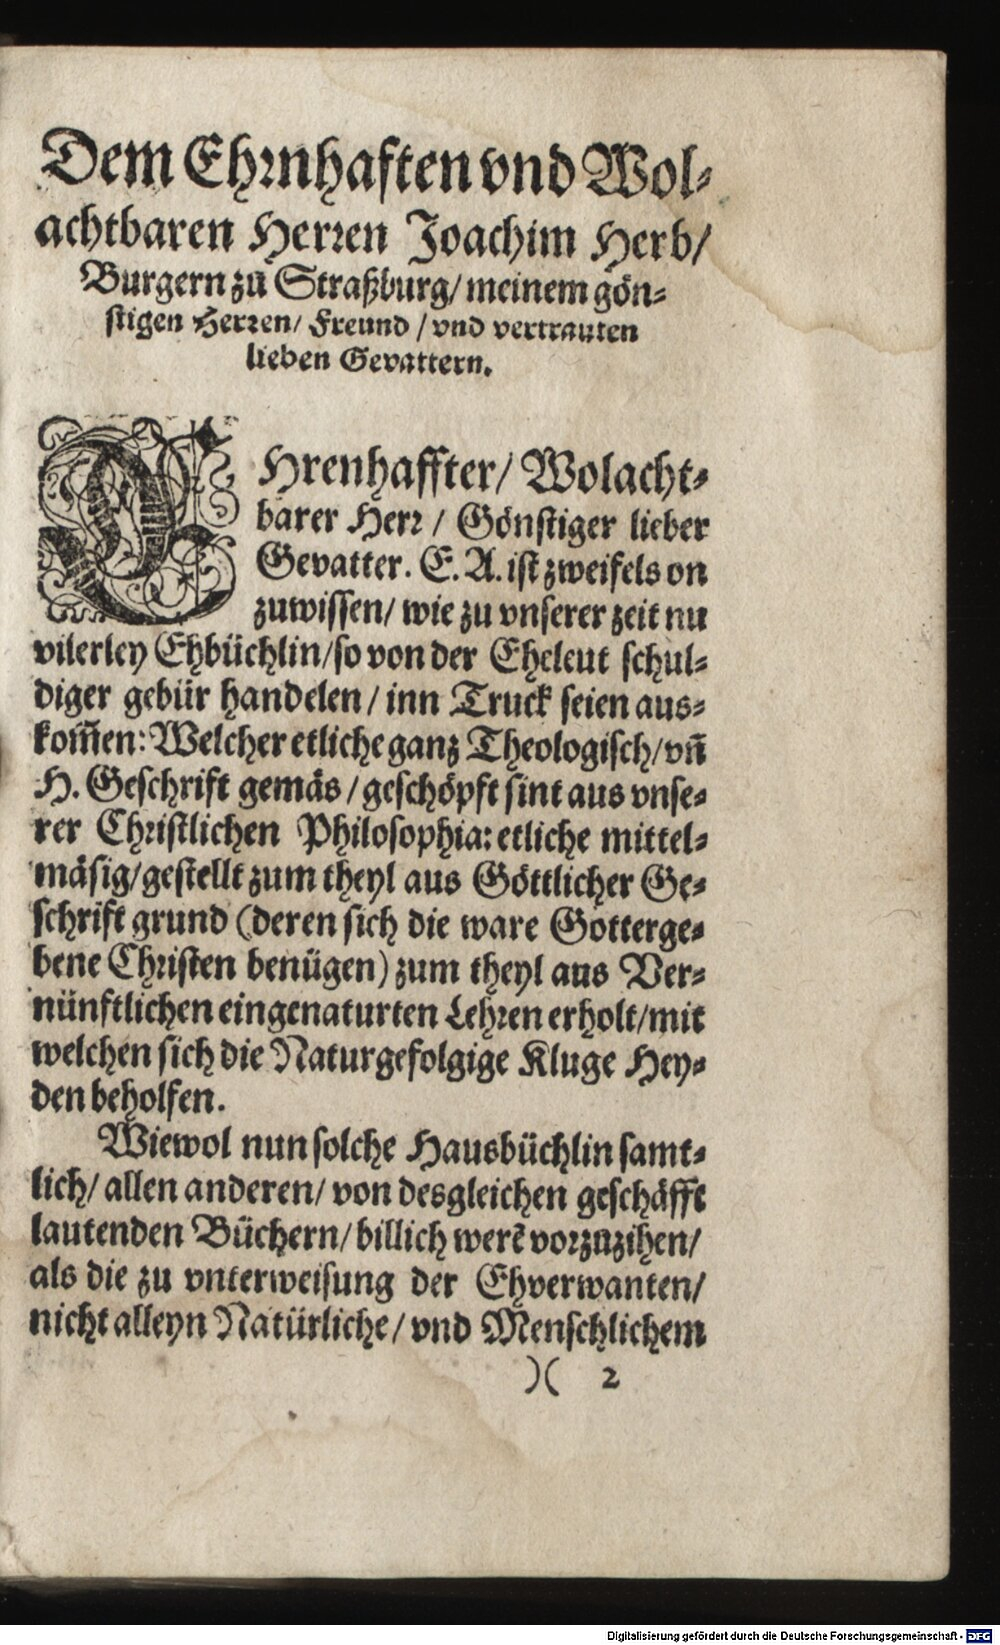 Dem Ehrnhaften vnd Wol-
achtbaren Herren Joachim Herb/
Burgern zů Straßburg/ meinem gön-
stigen Herren/ Freund / vnd vertrauten
lieben Gevattern.
EHrenhaffter/ Wolacht-
barer Herr / Gönstiger lieber
Gevatter. E. A. ist zweifels on
zuwissen/ wie zu vnserer zeit nu
vilerley Ehbüchlin/ so von der Eheleut schul-
diger gebür handelen / inn Truck seien aus-
kom̄en: Welcher etliche ganz Theologisch/ vn̄
H. Geschrift gemäs / geschöpft sint aus vnse-
rer Christlichen Philosophia: etliche mittel-
mäsig/ gestellt zum theyl aus Göttlicher Ge-
schrift grund (deren sich die ware Gotterge-
bene Christen benügen) zum theyl aus Ver-
nünftlichen eingenaturten Lehren erholt/ mit
welchen sich die Naturgefolgige Kluge Hey-
den beholfen.
Wiewol nun solche Hausbüchlin samt-
lich/ allen anderen/ von desgleichen geschäfft
lautenden Büchern/ billich werẽ vorzuzihen/
als die zu vnterweisung der Ehverwanten/
nicht alleyn Natürliche/ vnd Menschlichem
)( 2
Digitalisierung gefördert durch die Deutsche Forschungsgemeinschaft - DFG